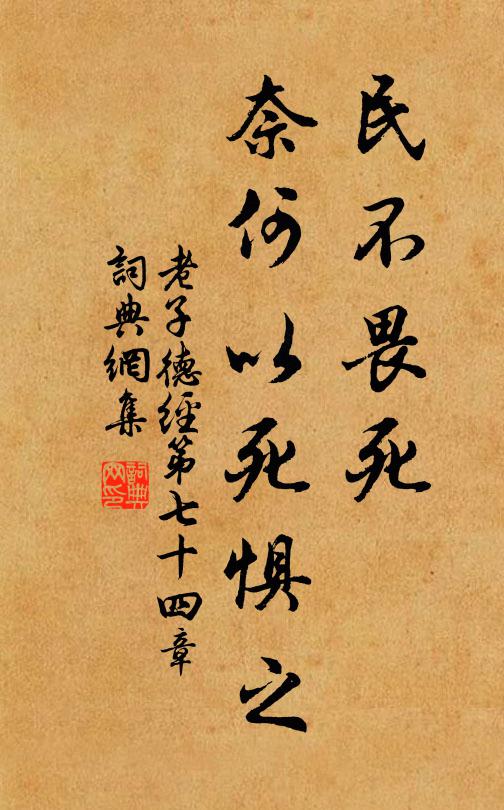 民不畏死
奈何以死惧之
老子德經第七十四章
詞典網集
詞典
网印